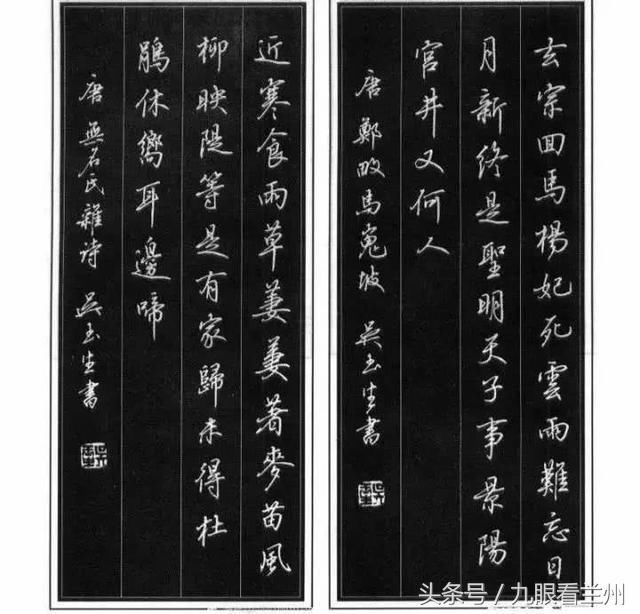 玄宗回馬楊妃死雲雨難忘日
月新終是聖明天子事景陽
宮井又何人
唐 鄭畋馬嵬坡 吳玉生書
近寒食雨草萋萋著麥苗風
柳映隄等是有家歸未得杜
鵑休嚮耳邊啼
唐 無名氏雜诗 吳玉生書
头条号 / 九眼看兰州